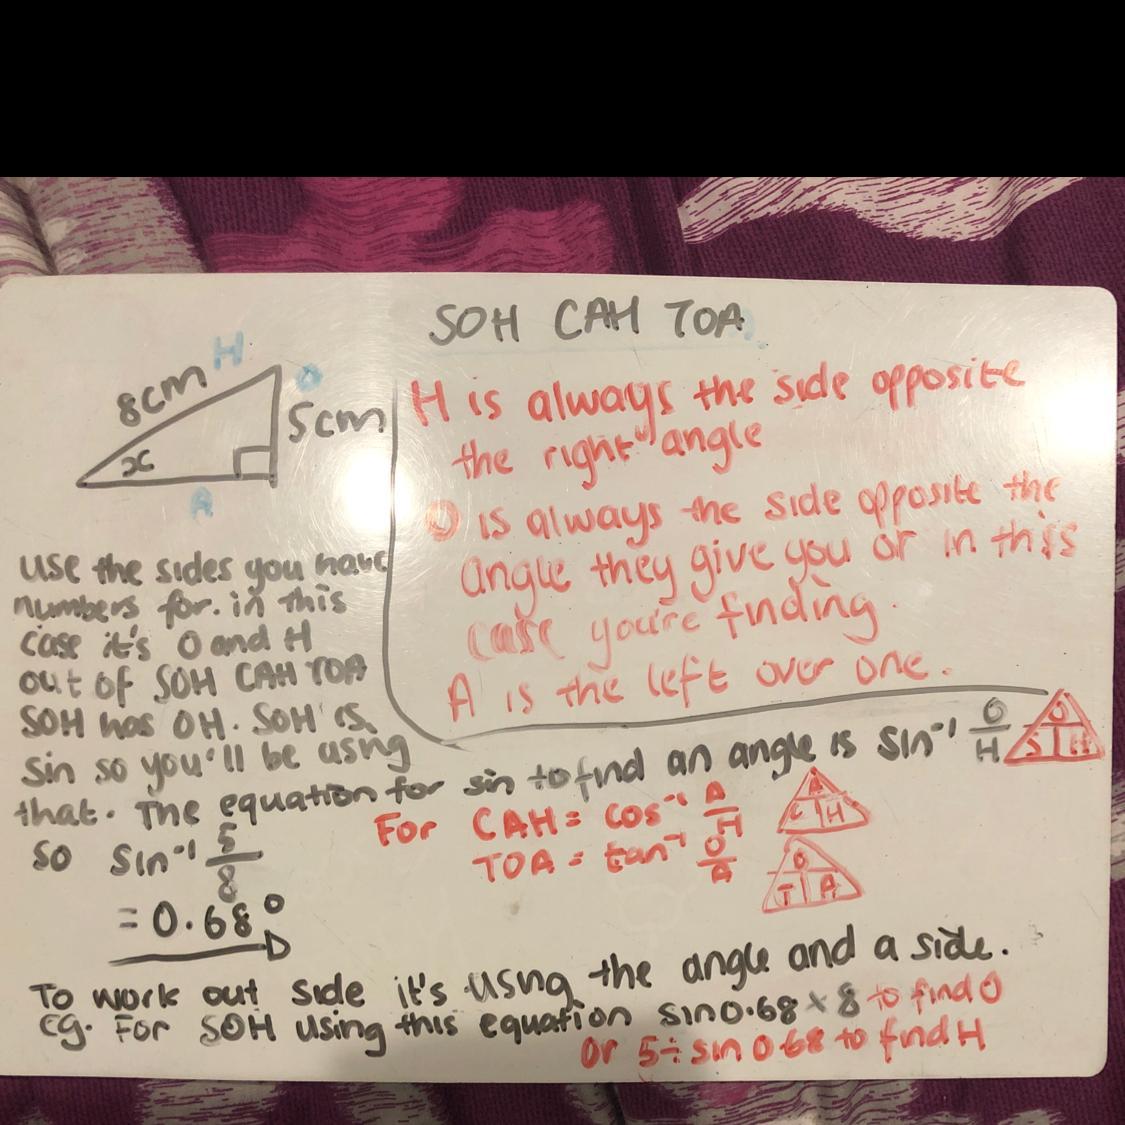 SOH CAH TOA
H
8cm
O
5cm
x
A
H is always the side opposite
the right angle
O is always the side opposite the
angle they give you or in this
case you're finding.
A is the left over one.
use the sides you have
numbers for. in this
case it's O and H
out of SOH CAH TOA
SOH has OH. SOH is
sin so you'll be using
that. The equation for sin to find an angle is sin⁻¹ O/H
O
S H
For CAH = cos⁻¹ A/H
A
C H
TOA = tan⁻¹ O/A
O
T A
so sin⁻¹ 5/8
= 0.68°
To work out side it's using the angle and a side.
eg. For SOH using this equation sin0.68 × 8 to find O
or 5 ÷ sin 0.68 to find H